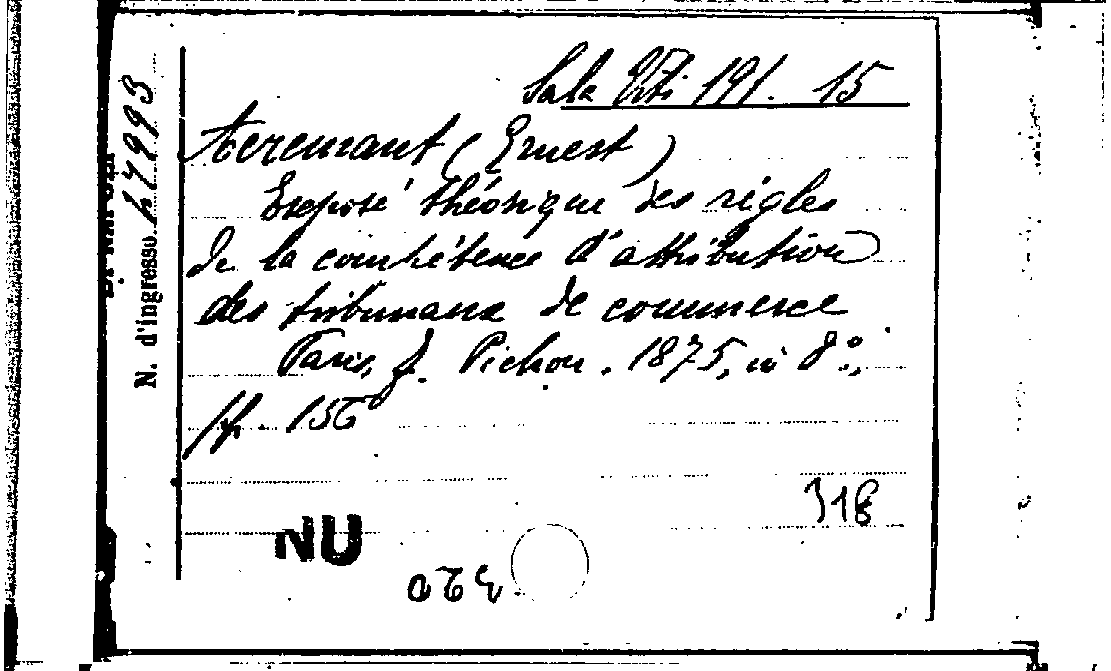 Sala Erti 191. 15
Acremant (Ernest)
Exposé théorique des règles
de la compétence d'attribution
des tribunaux de commerce
Paris, J. Pichon. 1875, in 8°,
pp. 156
318
NU
320
N. d'Ingresso